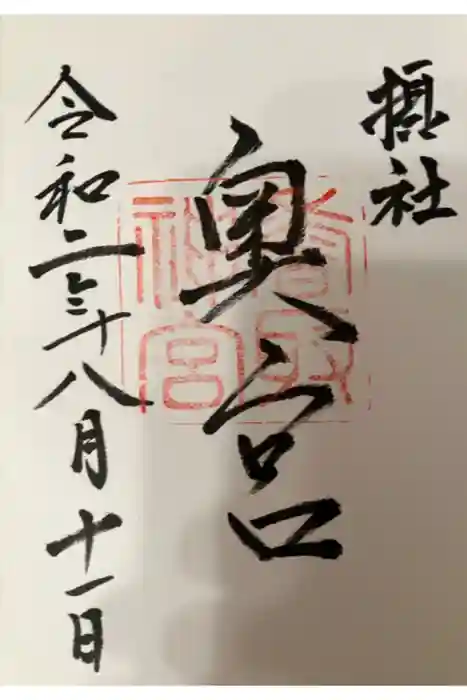 摂社
奥宮
香取
神宮
令和二年八月十一日